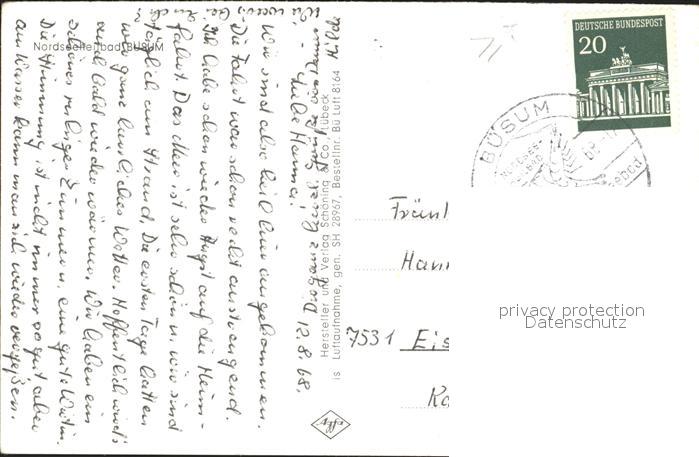 Nordseeheilbad BÜSUM
12.8.68.
Liebe Hanne!
Wir sind also heil hier angekommen.
Die Fahrt war schon recht anstrengend.
Ich habe schon wieder Angst auf die Heim-
fahrt. Das Meer ist sehr schön u. wir sind
täglich am Strand. Die ersten Tage hatten
wir ganz herrliches Wetter. Hoffentlich wird's
auch bald wieder wärmer. Wir haben ein
schönes ruhiges Zimmer, eine gute Wirtin.
Die Stimmung ist nicht immer so gut aber
am Wasser kann man sich wieder vergessen.
Hersteller und Verlag Schöning & Co., Lübeck
Luftaufnahme, gen. SH 28967, Bestellnr. Bü Luft 8164
DEUTSCHE BUNDESPOST
20
BÜSUM
NORDSEE-
BAD
Fräul
Hann
7531 Eis
privacy protection
Datenschutz